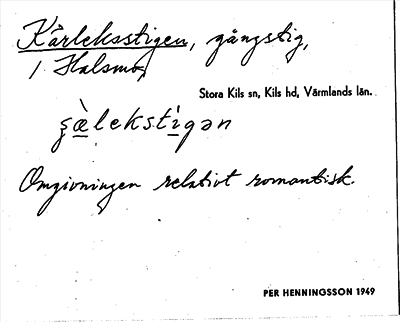 Kärleksstigen, gångstig,
i Halsmo,
Stora Kils sn, Kils hd, Värmlands län.
Omgivningen relativt romantisk.
PER HENNINGSSON 1949